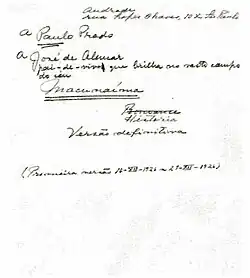 Andrade
rua Lopes Chaves, 108 São Paulo
A Paulo Prado
A José de Alencar
pai-de-vivos que brilha no vasto campo
do céu
Macunaíma
Romance
História
Versão definitiva
(Primeira versão 16-XII-1926 a 23-XII-1926)